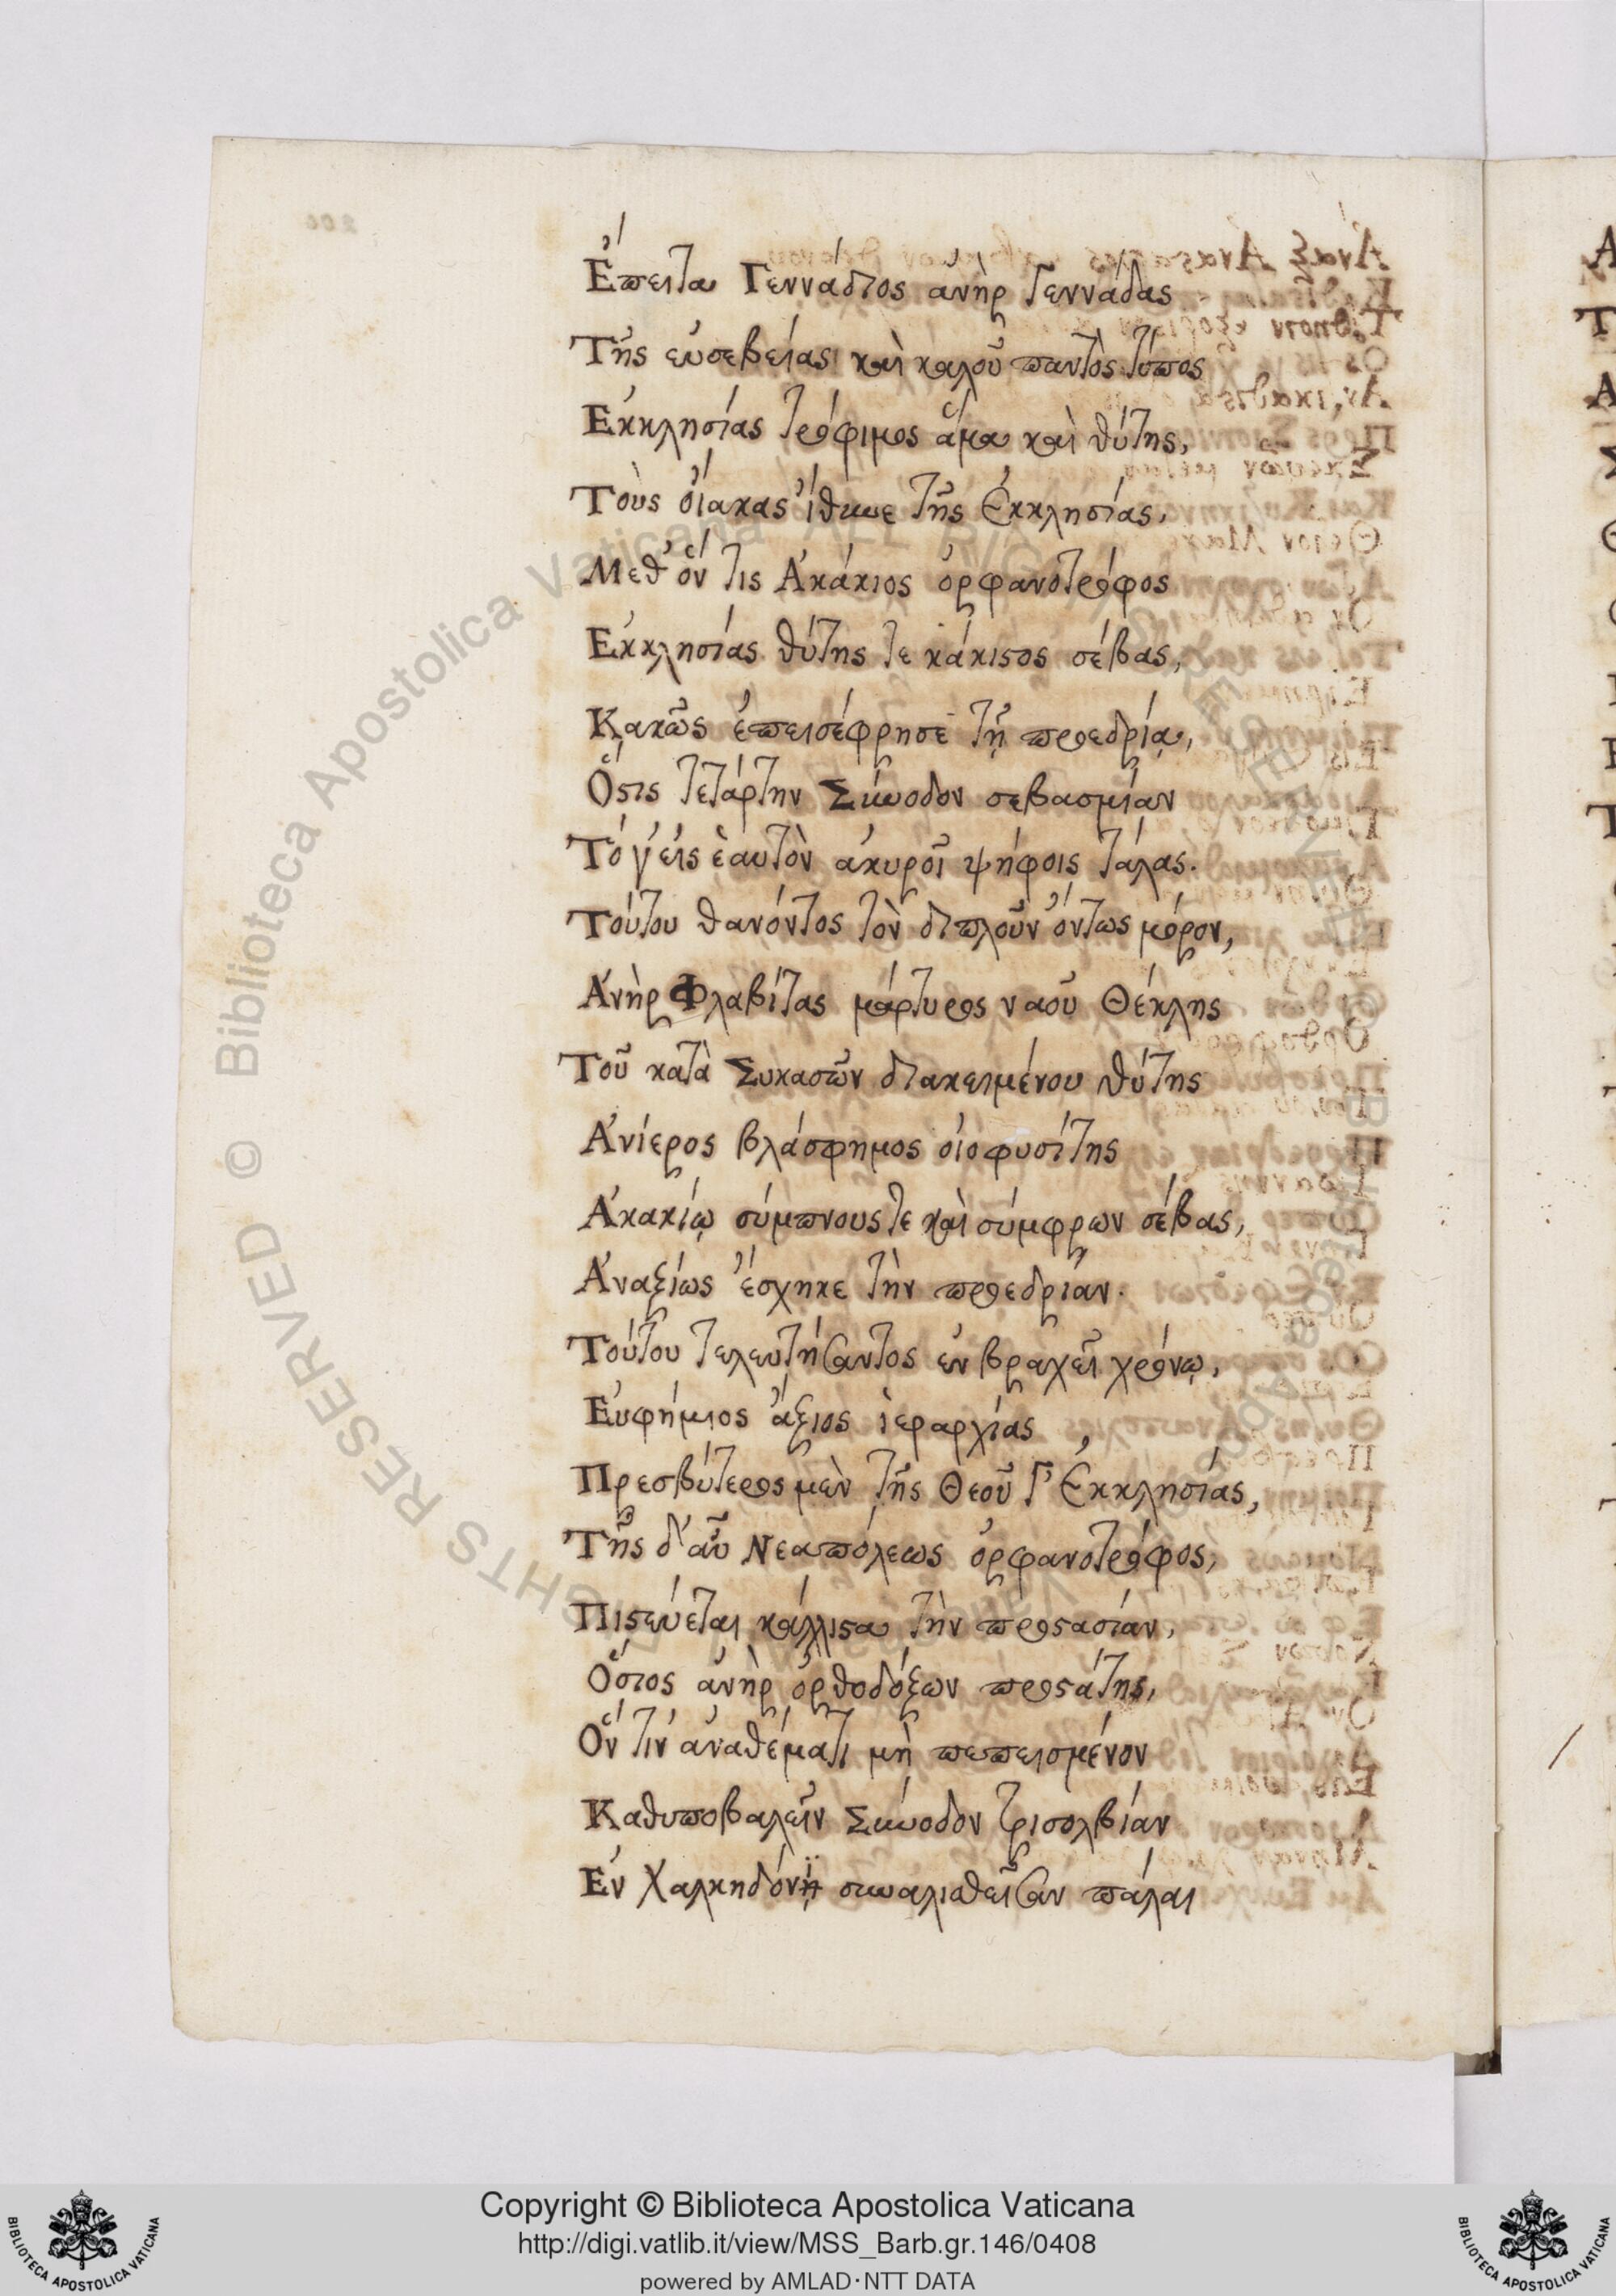 Ἔπειτα Γεννάδιος ἀνὴρ Γεννάδας
Τῆς εὐσεβείας καὶ καλοῦ παντὸς τύπος
Ἐκκλησίας τρόφιμος ἅμα καὶ θύτης,
Τοὺς οἴακας ἴθυνε τῆς Ἐκκλησίας,
Μεθ' ὅν τις Ἀκάκιος ὀρφανοτρόφος
Ἐκκλησίας θύτης τε κάκιστος σέβας,
Κακῶς ἐπεισέφρησε τῇ προεδρίᾳ,
Ὅστις τετάρτην Σύνοδον σεβασμίαν
Τό γ' εἰς ἑαυτὸν ἀκυροῖ ψήφοις τάλας.
Τούτου θανόντος τὸν διπλοῦν ὄντως μόρον,
Ἀνὴρ Φλαβίτας μάρτυρος ναοῦ Θέκλης
Τοῦ κατὰ Συκασῶν διακειμένου θύτης
Ἀνίερος βλάσφημος οἰοφυσίτης
Ἀκακίῳ σύμπνους τε καὶ σύμφρων σέβας,
Ἀναξίως ἔσχηκε τὴν προεδρίαν.
Τούτου τελευτήσαντος ἐν βραχεῖ χρόνῳ,
Εὐφήμιος ἄξιος ἱεραρχίας,
Πρεσβύτερος μὲν τῆς Θεοῦ Γ' Ἐκκλησίας,
Τῆς δ' αὖ Νεαπόλεως ὀρφανοτρόφος,
Πιστεύεται κάλλιστα τὴν προστασίαν,
Ὅσιος ἀνὴρ ὀρθοδόξων προστάτης,
Ὅν τιν' ἀναθέματι μὴ πεπεισμένον
Καθυποβαλεῖν Σύνοδον τρισολβίαν
Ἐν Χαλκηδόνι συναλισθεῖσαν πάλαι
Copyright © Biblioteca Apostolica Vaticana
http://digi.vatlib.it/view/MSS_Barb.gr.146/0408
powered by AMLAD·NTT DATA
BIBLIOTECA APOSTOLICA VATICANA
BIBLIOTECA APOSTOLICA VATICANA